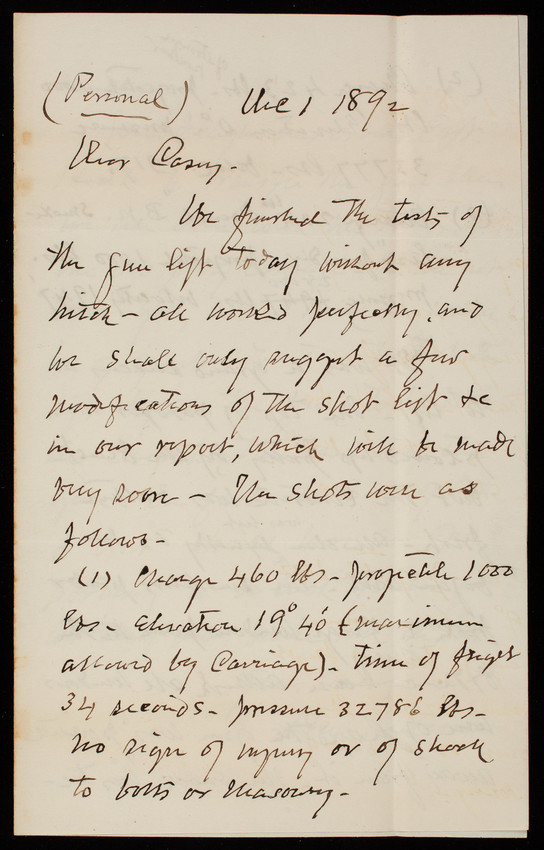 (Personal) Dec 1 1892
Dear Casey -
We finished the tests of
the gun lift today without any
hitch - all worked perfectly, and
we shall only suggest a few
modifications of the shot lift &c
in our report, which will be made
very soon - The shots were as
follows -
(1) Charge 460 lbs - projectile 1000
lbs - elevation 19° 40' (maximum
allowed by carriage) - time of flight
34 seconds - pressure 32786 lbs -
No sign of injury or of shock
to bolts or masonry -